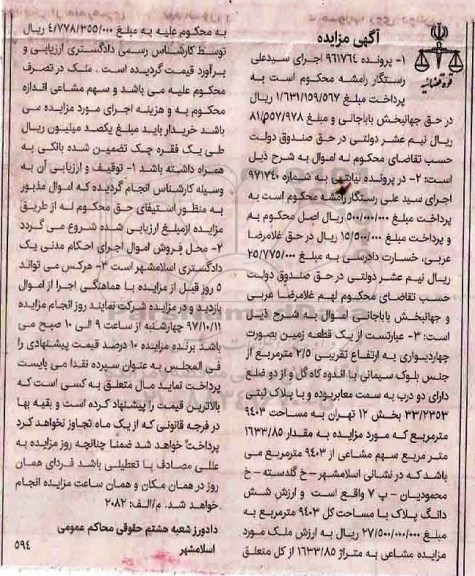 آگهی مزایده
قوه قضائیه
۱- پرونده ۹۶۱۷۶۴ اجرای سیدعلی
رستگار رامشه محکوم است به
پرداخت مبلغ ۱/۶۳۱/۱۵۹/۵۶۷ ریال
در حق جهانبخش باباجانی و مبلغ ۸۱/۵۵۷/۹۷۸
ریال نیم عشر دولتی در حق صندوق دولت
حسب تقاضای محکوم له اموال به شرح ذیل
است: ۲- در پرونده نیابتی به شماره ۹۷۱۷۴۰
اجرای سید علی رستگار رامشه محکوم است به
پرداخت مبلغ ۵۰۰/۰۰۰/۰۰۰ ریال اصل محکوم به
و پرداخت مبلغ ۱۵/۵۰۰/۰۰۰ ریال در حق غلامرضا
عربی، خسارت دادرسی به مبلغ ۲۵/۷۷۵/۰۰۰
ریال نیم عشر دولتی در حق صندوق دولت
حسب تقاضای محکوم لهم غلامرضا عربی
و جهانبخش باباجانی اموال به شرح ذیل
است: ۳- عبارتست از یک قطعه زمین بصورت
چهاردیواری به ارتفاع تقریبی ۲/۵ مترمربع از
جنس بلوک سیمانی با اندوه کاه گل و از دو ضلع
دارای دو درب به سمت معابربوده و با پلاک ثبتی
۳۳/۲۳۵۳ بخش ۱۲ تهران به مساحت ۹۴۰۳
مترمربع که مورد مزایده به مقدار ۱۶۳۳/۸۵
متر مربع سهم مشاعی از ۹۴۰۳ مترمربع می
باشد که در نشانی اسلامشهر – خ گلدسته – خ
محمودیان – پ ۷ واقع است و ارزش شش
دانگ پلاک با مساحت کل ۹۴۰۳ مترمربع به
مبلغ ۲۷/۵۰۰/۰۰۰/۰۰۰ ریال به ارزش ملک مورد
مزایده مشاعی به متراژ ۱۶۳۳/۸۵ از کل متعلق
به محکوم علیه به مبلغ ۴/۷۷۸/۳۵۵/۰۰۰ ریال
توسط کارشناس رسمی دادگستری ارزیابی و
برآورد قیمت گردیده است. ملک در تصرف
محکوم علیه می باشد و سهم مشاعی اندازه
محکوم به و هزینه اجرای مورد مزایده می
باشد خریدار باید مبلغ یکصد میلیون ریال
طی یک فقره چک تضمین شده بانکی به
همراه داشته باشد ۱- توقیف و ارزیابی آن به
وسیله کارشناس انجام گردیده که اموال مذبور
به منظور استیفای حق محکوم له از طریق
مزایده ازمبلغ ارزیابی شده شروع می گردد
۲- محل فروش اموال اجرای احکام مدنی یک
دادگستری اسلامشهر است ۳- هرکس می تواند
۵ روز قبل از مزایده با هماهنگی اجرا از اموال
بازدید و در مزایده شرکت نمایند روز انجام مزایده
۹۷/۱۰/۱۱ چهارشنبه از ساعت ۹ الی ۱۰ صبح می
باشد برنده مزایده ۱۰ درصد قیمت پیشنهادی را
فی المجلس به عنوان سپرده نقدا می بایست
پرداخت نماید مال متعلق به کسی است که
بالاترین قیمت را پیشنهاد کرده است و بقیه بها
در فرجه قانونی که از یک ماه تجاوز نخواهد کرد
پرداخت خواهد شد ضمنا چنانچه روز مزایده به
عللی مصادف با تعطیلی باشد فردای همان
روز در همان مکان و همان ساعت مزایده انجام
خواهد شد. م/الف: ۲۰۸۲
دادورز شعبه هشتم حقوقی محاکم عمومی
اسلامشهر
۵۹۴